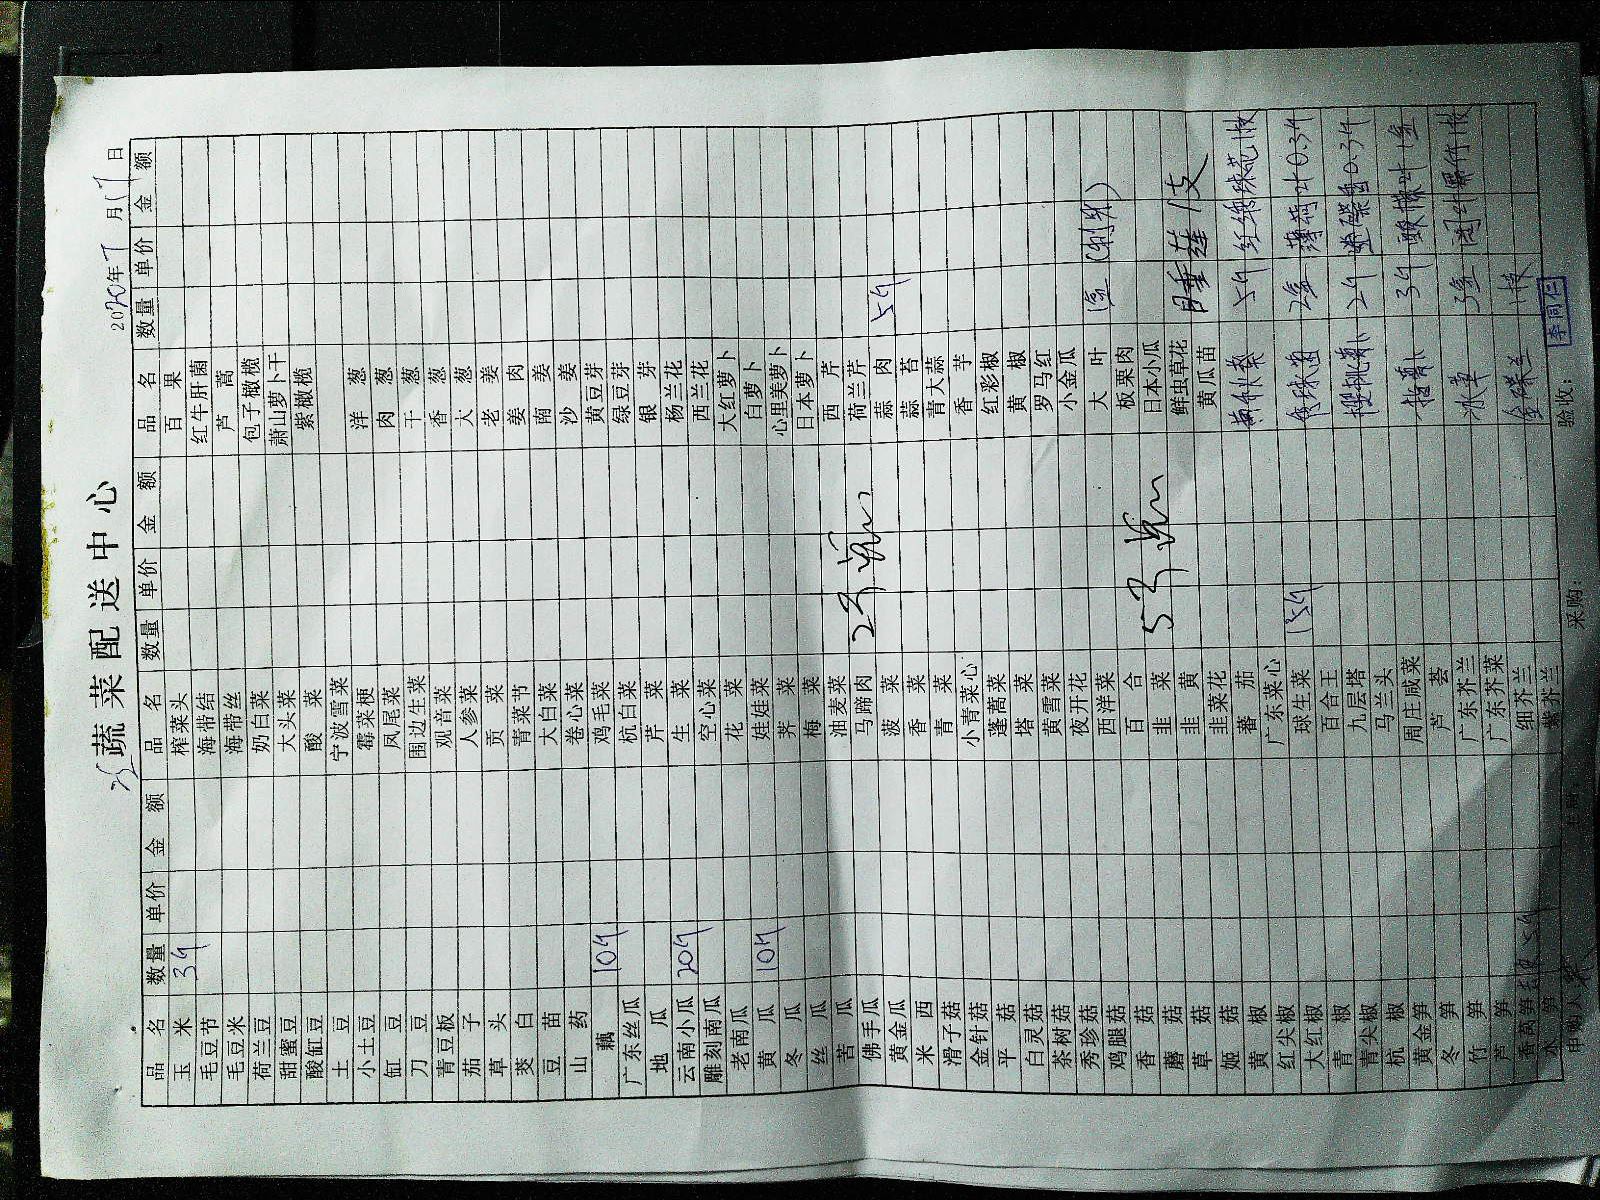 蔬菜配送中心
2020年7月17日
品名 数量 单价 金额 品名 数量 单价 金额 品名 数量 单价 金额
玉米 3斤 榨菜头 百果
毛豆节 海带结 红牛肝菌
毛豆米 海带丝 芦蒿
荷兰豆 奶白菜 包子橄榄
甜蜜豆 大头菜 萧山萝卜干
酸缸豆 酸菜 紫橄榄
土豆 宁波雪菜
小土豆 霉菜梗 洋葱
缸豆 凤尾菜 肉葱
刀豆 围边生菜 干葱
青豆板 观音菜 香葱
茄子 人参菜 大葱
草头 贡菜 老姜
茭白 青菜节 姜肉
豆苗 大白菜 南姜
山药 卷心菜 沙姜
藕 10斤 鸡毛菜 黄豆芽
广东丝瓜 杭白菜 绿豆芽
地瓜 芹菜 银芽
云南小瓜 20斤 生菜 杨兰花
雕刻南瓜 空心菜 西兰花
老南瓜 花菜 大红萝卜
黄瓜 10斤 娃娃菜 白萝卜
冬瓜 荠菜 心里美萝卜
丝瓜 梅菜 日本萝卜
苦瓜 油麦菜 西芹
佛手瓜 马蹄肉 荷兰芹
黄金瓜 菠菜 蒜肉 5斤
米西 香菜 蒜苔
滑子菇 青菜 青大蒜
金针菇 小青菜心 香芋
平菇 蓬蒿菜 红彩椒
白灵菇 塔菜 黄椒
茶树菇 黄雪菜 罗马红
秀珍菇 夜开花 小金瓜
鸡腿菇 西洋菜 大叶 1盒
香菇 百合 板栗肉
蘑菇 韭菜 日本小瓜
草菇 韭黄 鲜虫草花
姬菇 韭菜花 黄瓜苗
黄椒 蕃茄 黄秋葵 5斤
红尖椒 广东菜心
大红椒 球生菜 15斤 2盒 薄荷叶0.3斤
青椒 百合王
青尖椒 九层塔 2斤
杭椒 马兰头
黄金笋 周庄咸菜 3斤
冬笋 芦荟
竹笋 广东芥兰 冰草 3盒
芦笋 广东芥菜
香莴笋 细芥兰
水笋 紫芥兰
申购人: 采购: 验收: 李同仁